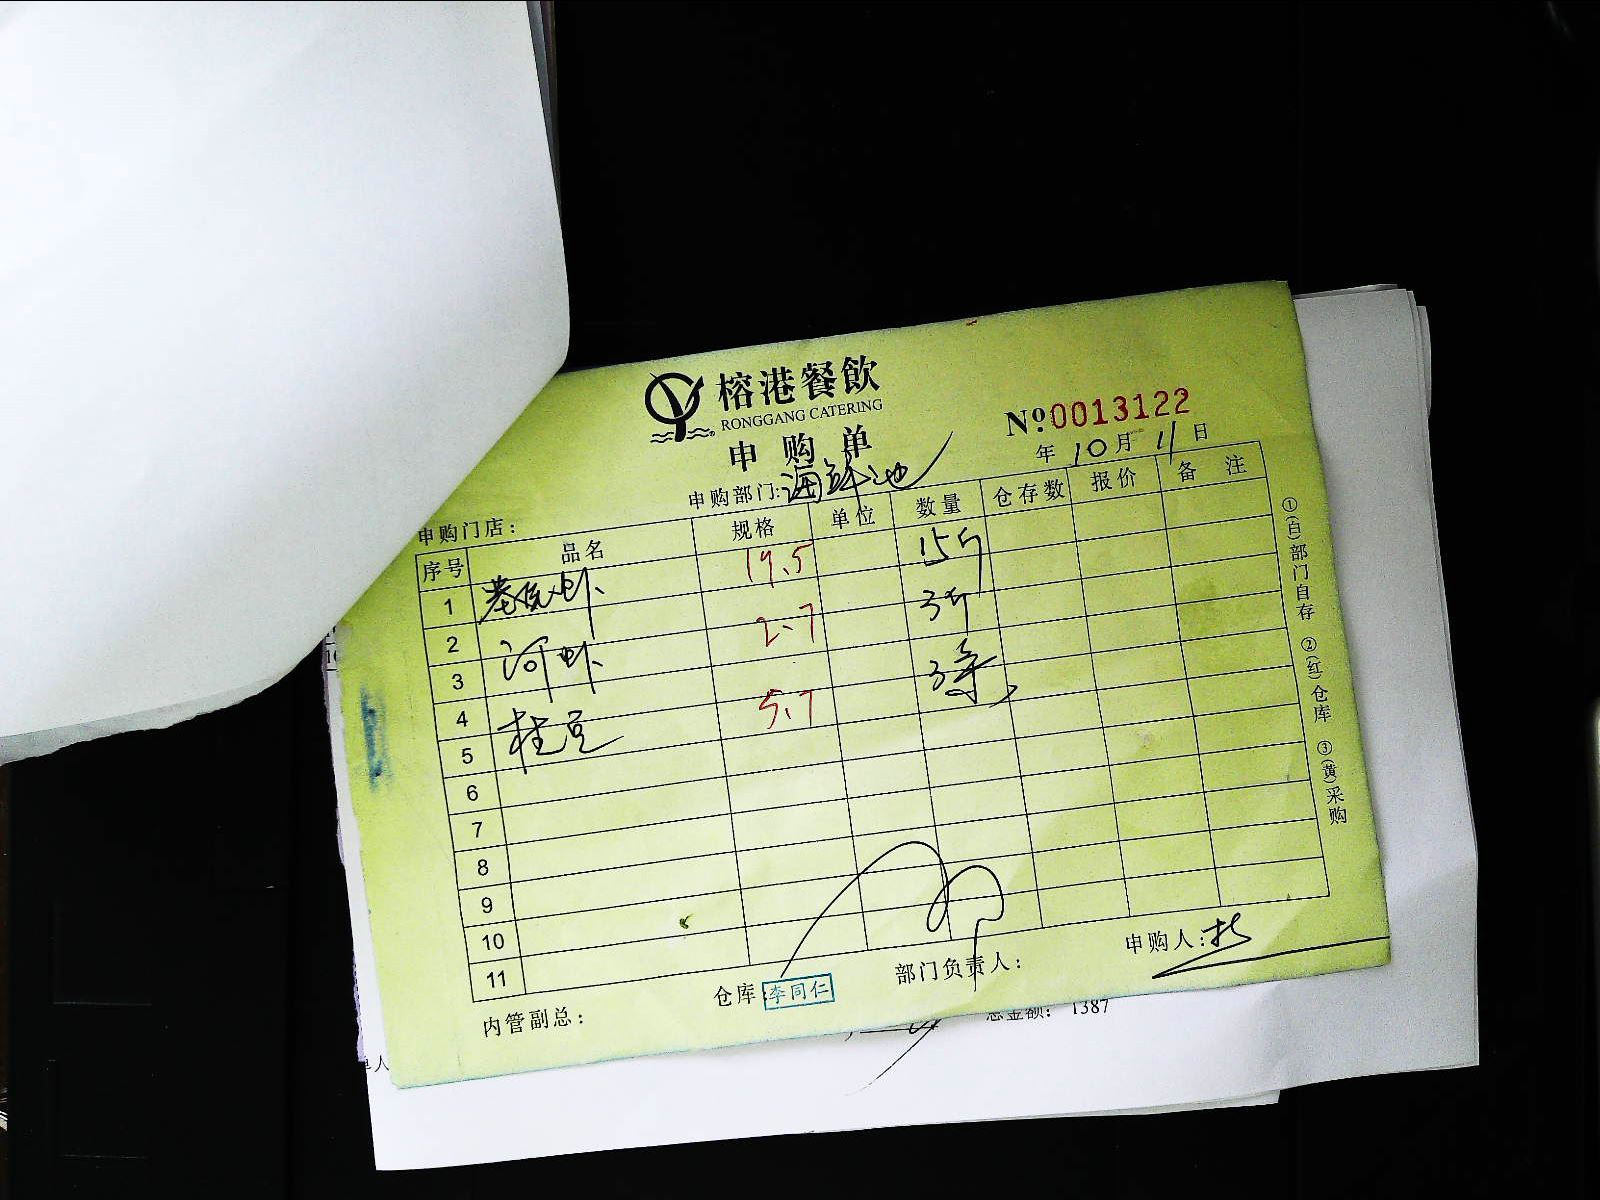 榕港餐飲
RONGGANG CATERING
申购单
Nº 0013122
年 10 月 11 日
申购门店： 申购部门：海鲜池
序号 品名 规格 单位 数量 仓存数 报价 备注
1 基围虾 19.5 15斤
2
3 河虾 2.7 3斤
4
5 桂豆 5.7 3条
6
7
8
9
10
11
内管副总： 仓库：李同仁 部门负责人： 申购人：
①(白)部门自存 ②(红)仓库 ③(黄)采购
总金额： 1387
单人